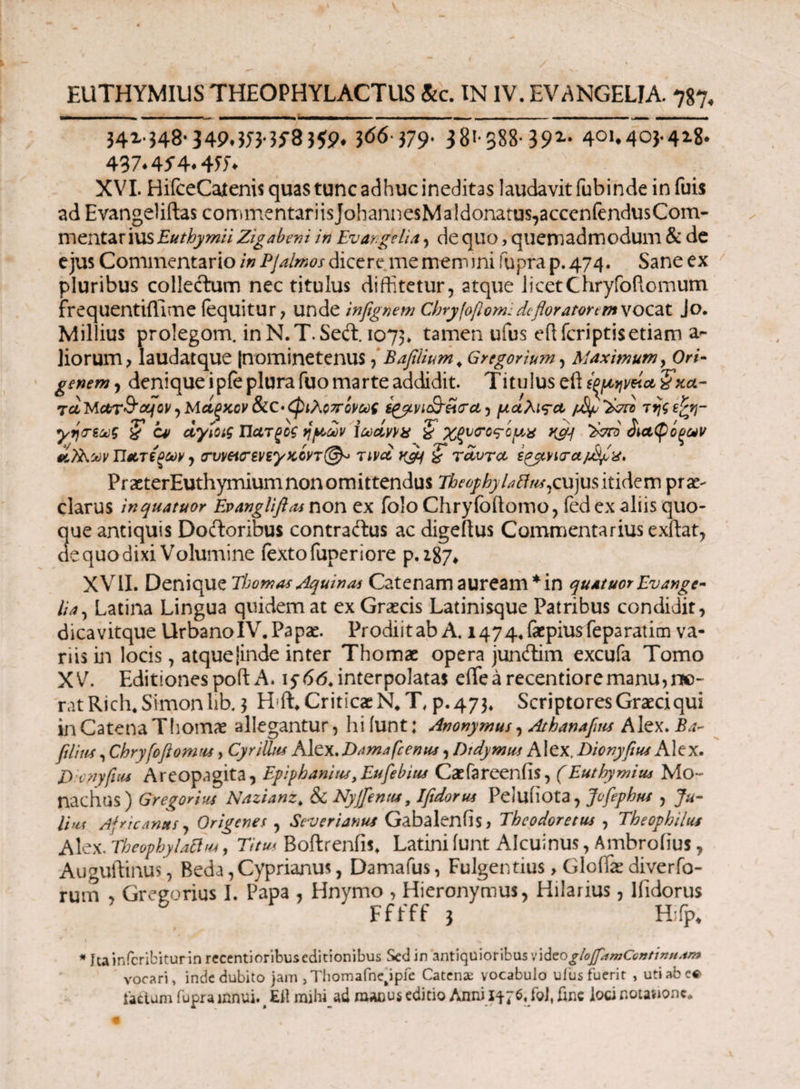 EUTHYMIUS THEOPHYLACTUS &c. IN IV. EVANGELIA. 787.
342. 348. 349. 353. 358 359. 366. 379. 381. 388. 392. 401. 403. 428.
437. 454. 455.
XVI. HisceCatenis quas tunc adhuc ineditas laudavit subinde in suis
ad Evangelistas commentariisJohannesMaldonatus,accensendusCom-
mentarius Euthymii Zigabeni in Evangelia, de quo, quemadmodum & de
ejus Commentario in Psalmos dicere me memini supra p. 474. Sane ex
pluribus collectum nec titulus diffitetur, atque licetChrysostomum
frequentissime sequitur, unde insignem Chrysostomi defloratorem vocat Jo.
Millius prolegom. in N. T. Sect. 1073. tamen usus est scriptis etiam a-
liorum, laudatque nominetenus, Basilium. Gregorium, Maximum, Ori-
genem, denique ipse plura suo marte addidit. Titulus est ἑρμηνεία ϗ κα-
τὰ Ματθαῖον, Μάρκον &c. φιλοπόνως ἐρανισθεῖσα, μάλιστα μὲν ἀπὸ τῆς ἐξη-
γήσεως ϗ ἐν ἁγίοις Πατρὸς ἡμῶν ἰωάννου ϗ χρυσοστόμου καὶ ἀπὸ διαφόρων
ἄλλων Πατέρων, συνεισενεγκόντος τινὰ καὶ ϗ ταῦτα ἐρανισαμένου.
PræterEuthymium non omittendus Theophylactus,cujus itidem præ-
clarus in quatuor Evanglistas non ex solo Chrysostomo, sed ex aliis quo-
que antiquis Doctoribus contractus ac digestus Commentarius exstat,
de quo dixi Volumine sexto superiore p. 287.
XVII. Denique Thomas Aquinas Catenam auream * in quatuor Evange-
lia, Latina Lingua quidem at ex Græcis Latinisque Patribus condidit,
dicavitque Urbano IV. Papæ. Prodiit ab A. 1474. sæpius separatim va-
riis in locis, atque inde inter Thomæ opera junctim excusa Tomo
XV. Editiones post A. 1566. interpolatas esse à recentiore manu, no-
rat Rich. Simon lib. 3 Hist. Criticæ N. T. p. 473. Scriptores Græci qui
in Catena Thomæ allegantur, hi sunt: Anonymus, Athanasius Alex. Ba-
silius, Chrysostomus, Cyrillus Alex. Damascenus, Didymus Alex. Dionysius Alex.
Dionysius Areopagita, Epiphanius, Eusebius Cæsareensis, (Euthymius Mo-
nachus) Gregorius Nazianz. & Nyssenus, Isidorus Pelusiota, Josephus, Ju-
lius Africanus, Origenes, Severianus Gabalensis, Theodoretus, Theophilus
Alex. Theophylactus, Titus Bostrensis. Latini sunt Alcuinus, Ambrosius,
Augustinus, Beda, Cyprianus, Damasus, Fulgentius, Glossæ diverso-
rum, Gregorius I. Papa, Hnymo, Hieronymus, Hilarius, Isidorus
Ffffff 3 Hisp.
* Ita inscribitur in recentioribus editionibus Sed in antiquioribus video glossamContinuam
vocari, inde dubito jam, Thomasne, ipse Catenæ vocabulo usus fuerit, uti ab eo
factum supra innui. Est mihi ad manus editio Anni 1476. fol. sine loci notatione.